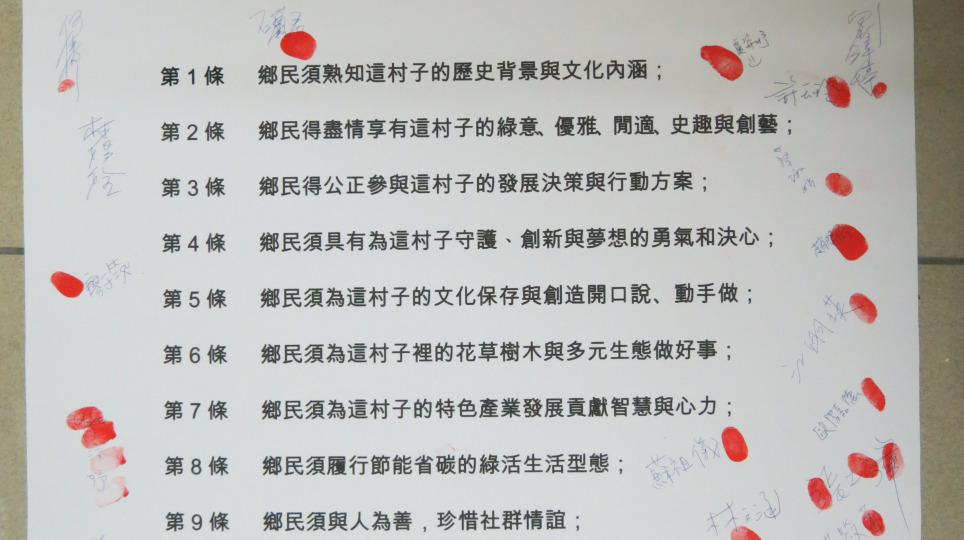 第1條 鄉民須熟知這村子的歷史背景與文化內涵；
第2條 鄉民得盡情享有這村子的綠意、優雅、閒適、史趣與創藝；
第3條 鄉民得公正參與這村子的發展決策與行動方案；
第4條 鄉民須具有為這村子守護、創新與夢想的勇氣和決心；
第5條 鄉民須為這村子的文化保存與創造開口說、動手做；
第6條 鄉民須為這村子裡的花草樹木與多元生態做好事；
第7條 鄉民須為這村子的特色產業發展貢獻智慧與心力；
第8條 鄉民須履行節能省碳的綠活生活型態；
蘇祖儀
第9條 鄉民須與人為善，珍惜社群情誼；